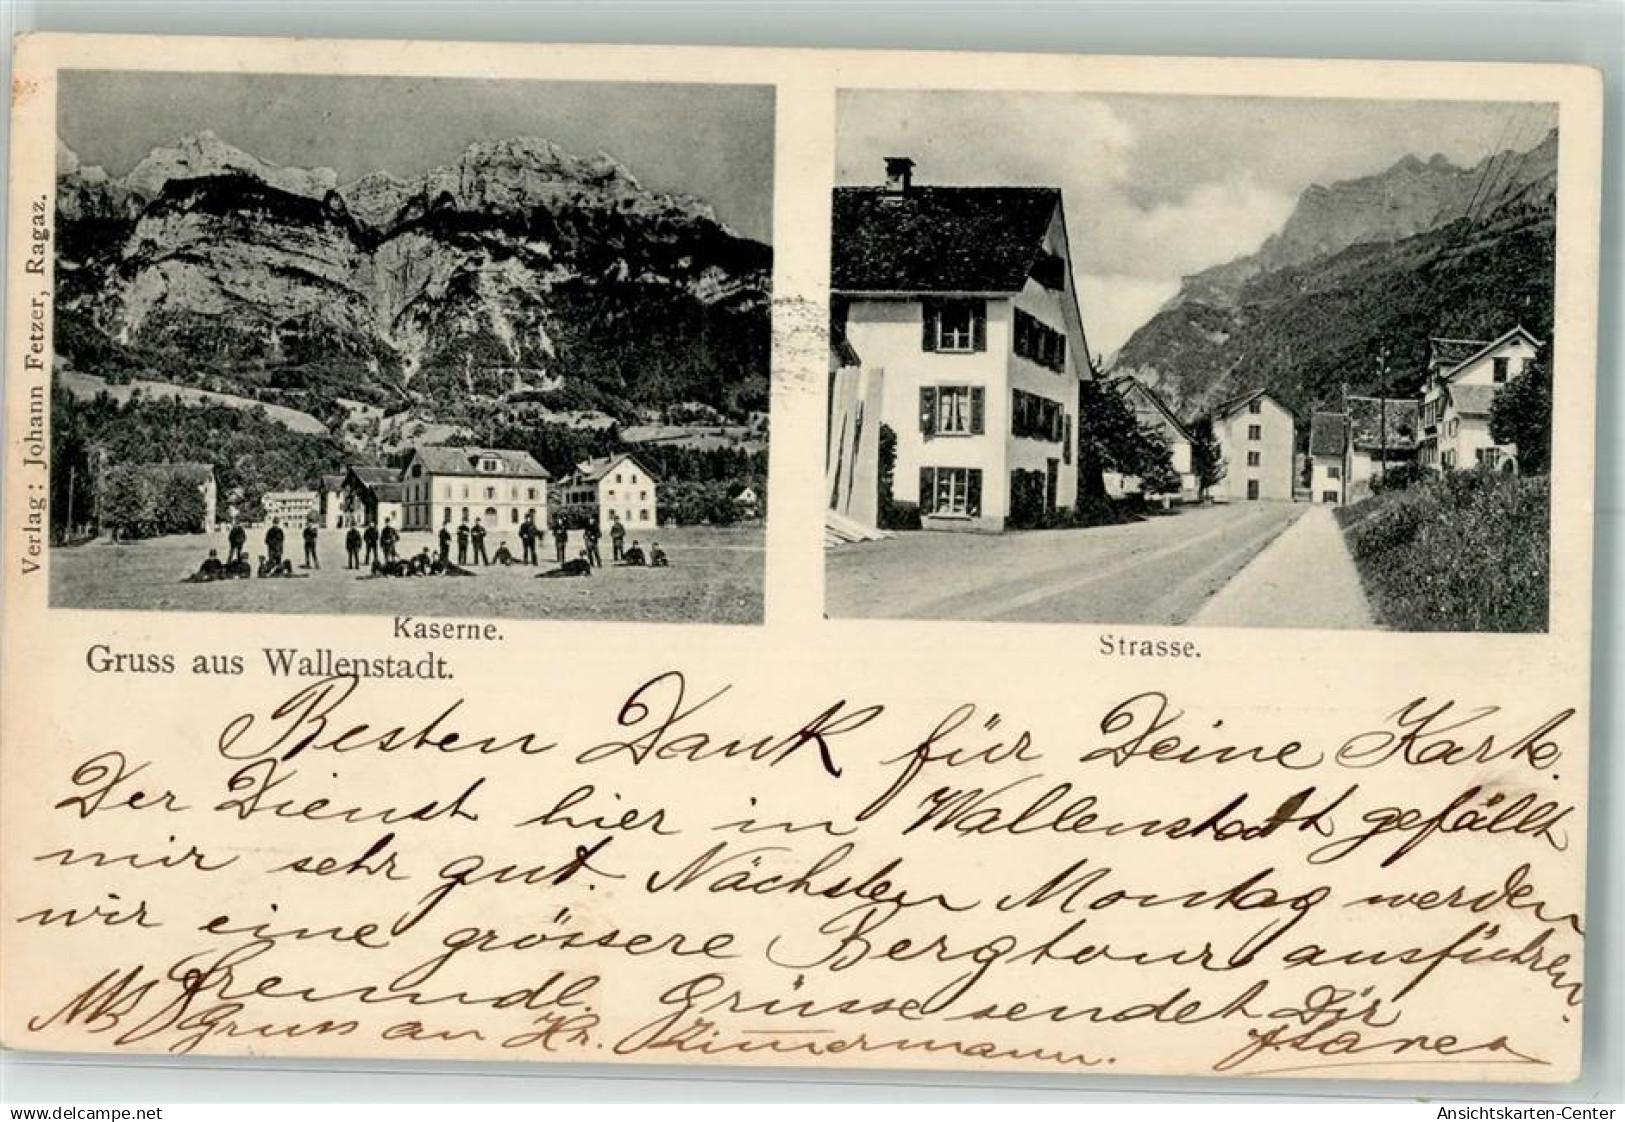 Verlag: Johann Fetzer, Ragaz.
Kaserne.
Strasse.
Gruss aus Wallenstadt.
Besten Dank für Deine Karte.
Der Dienst hier in Wallenstadt gefällt
mir sehr gut. Nächsten Montag werden
wir eine grössere Bergtour ausführen.
Freundl. Grüsse sendet Dir
NB Gruss an Hr. Zimmermann.
delcampe.net
Ansichtskarten-Center